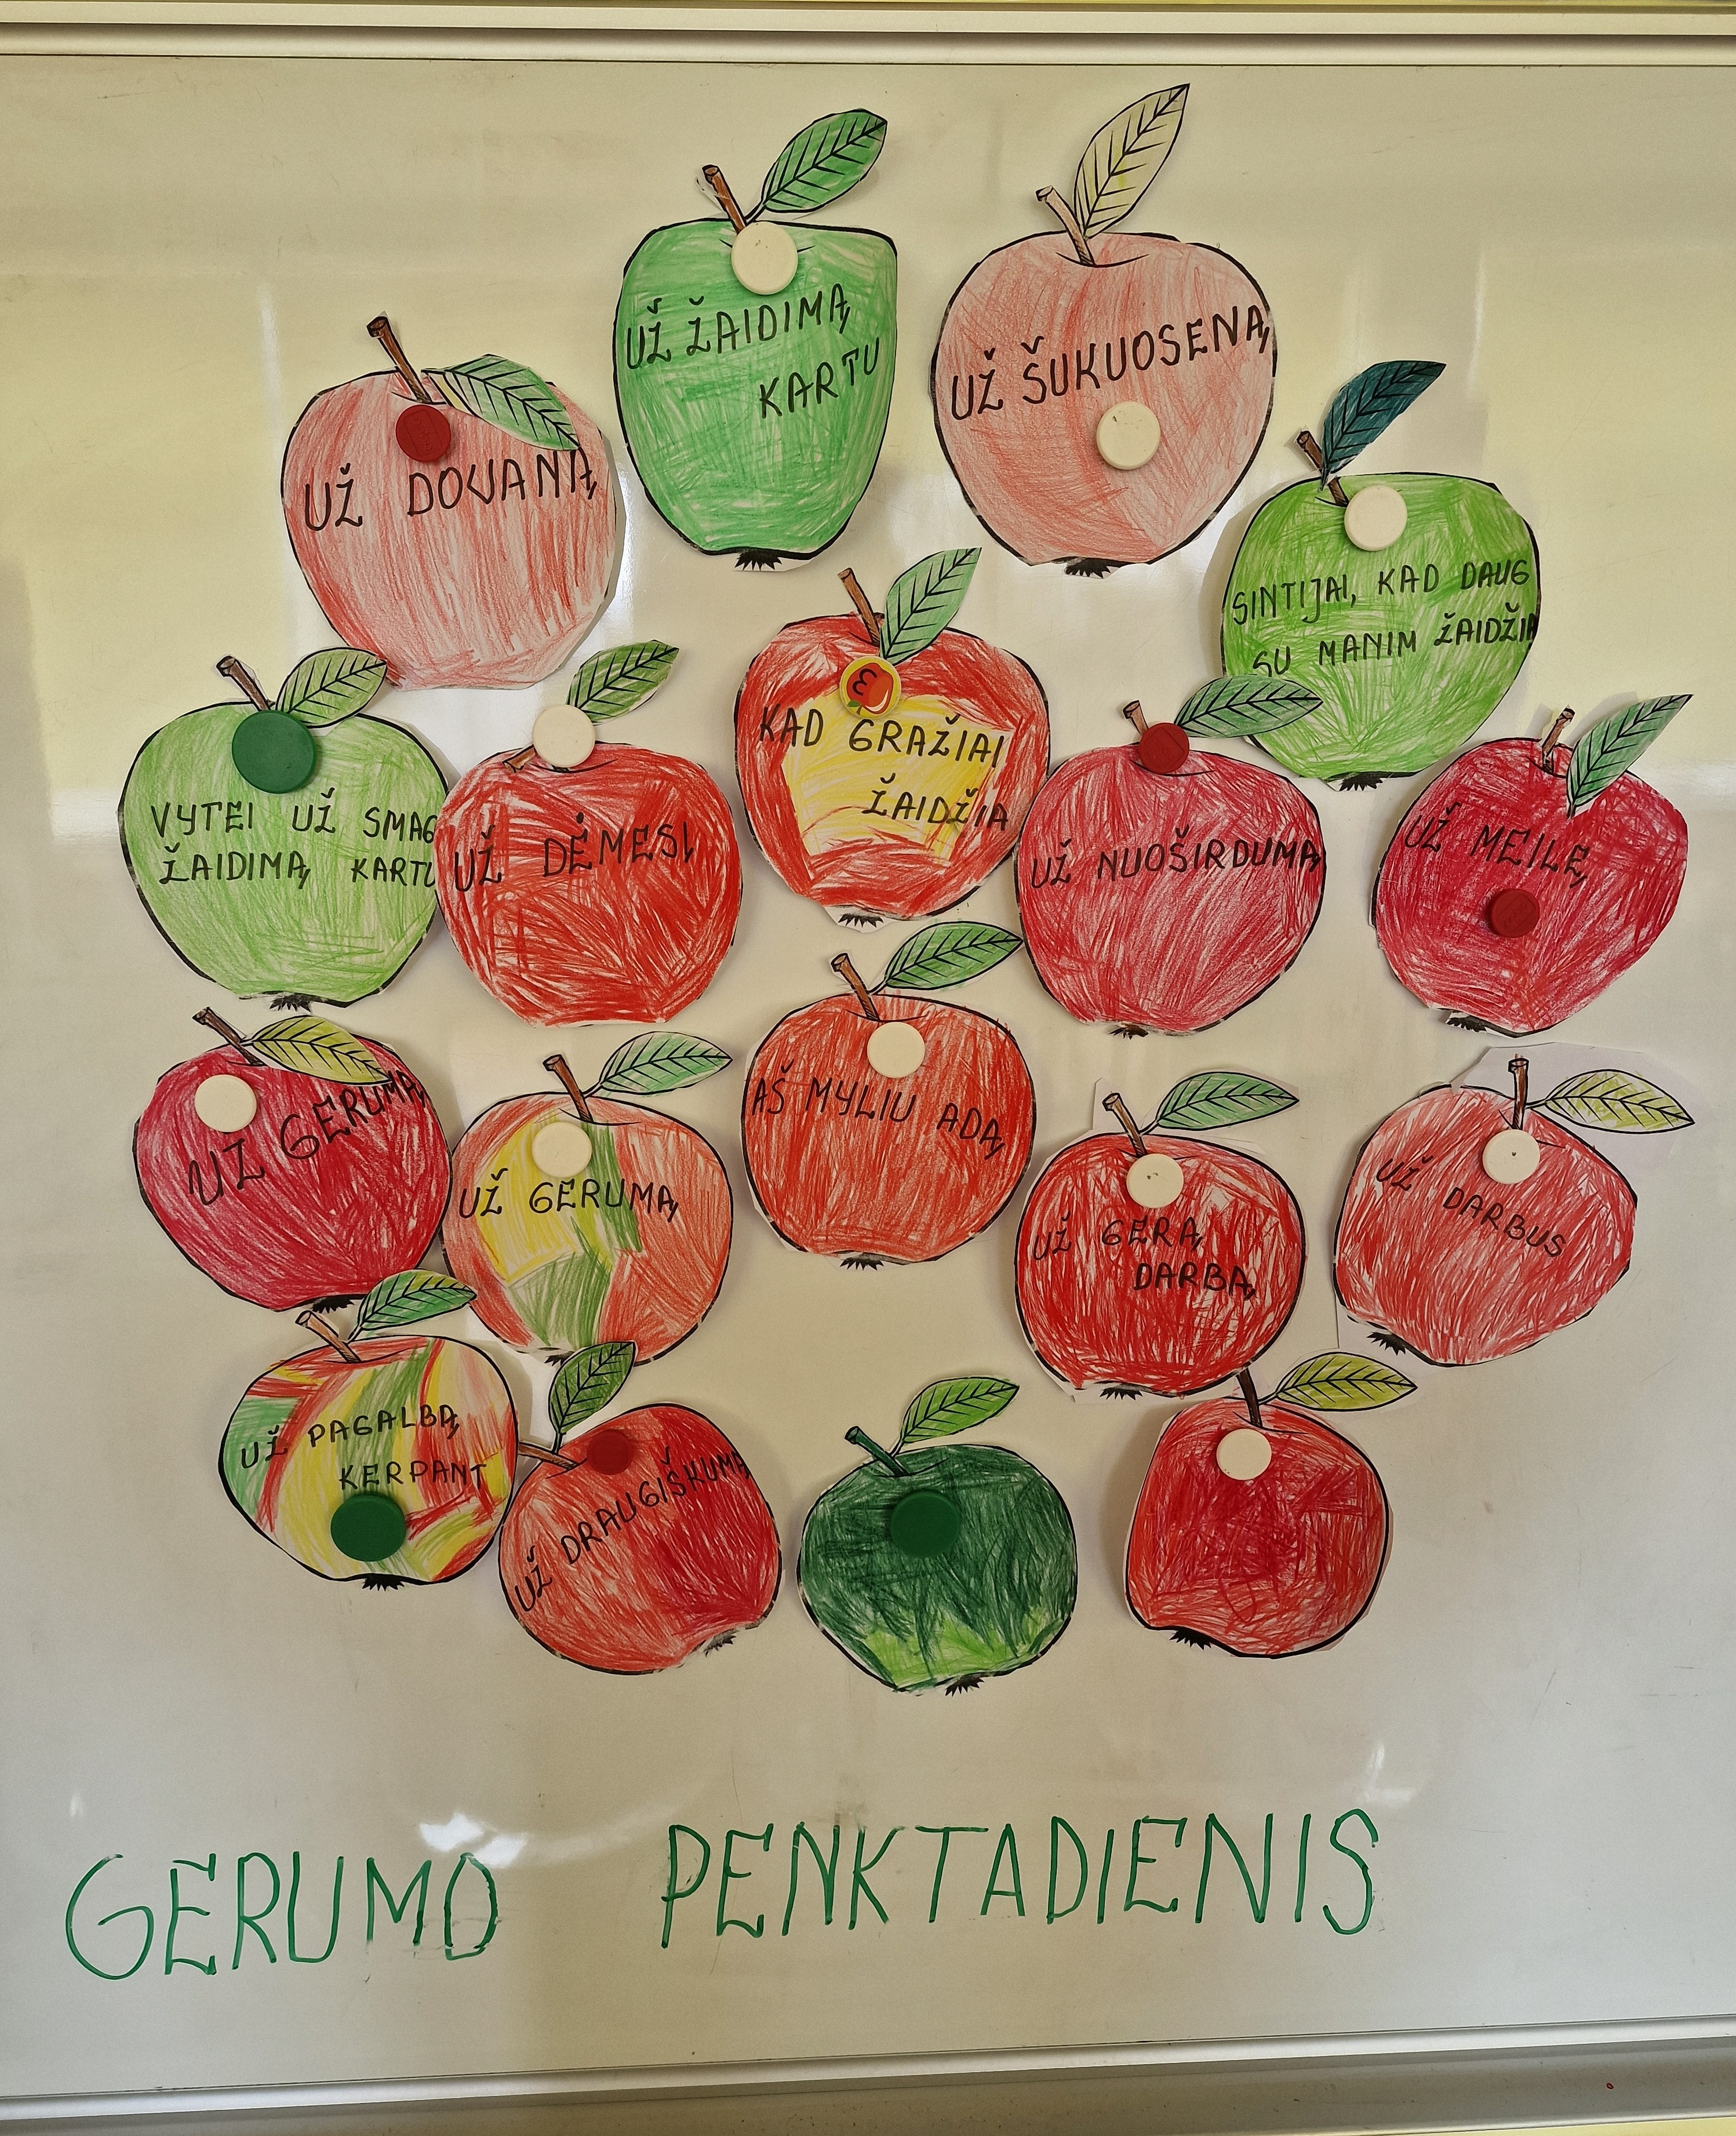 UŽ ŽAIDIMĄ
KARTU
UŽ ŠUKUOSENĄ
UŽ DOVANĄ
SINTIJAI, KAD DAUG
SU MANIM ŽAIDŽIA
KAD GRAŽIAI
ŽAIDŽIA
VYTEI UŽ SMAG
ŽAIDIMĄ KARTU
UŽ DĖMESĮ
UŽ NUOŠIRDUMĄ
UŽ MEILĘ
UŽ GERUMĄ
UŽ GERUMĄ
AŠ MYLIU ADĄ
UŽ GERĄ
DARBĄ
UŽ DARBUS
UŽ PAGALBĄ
KERPANT
UŽ DRAUGIŠKUMĄ
GERUMO PENKTADIENIS